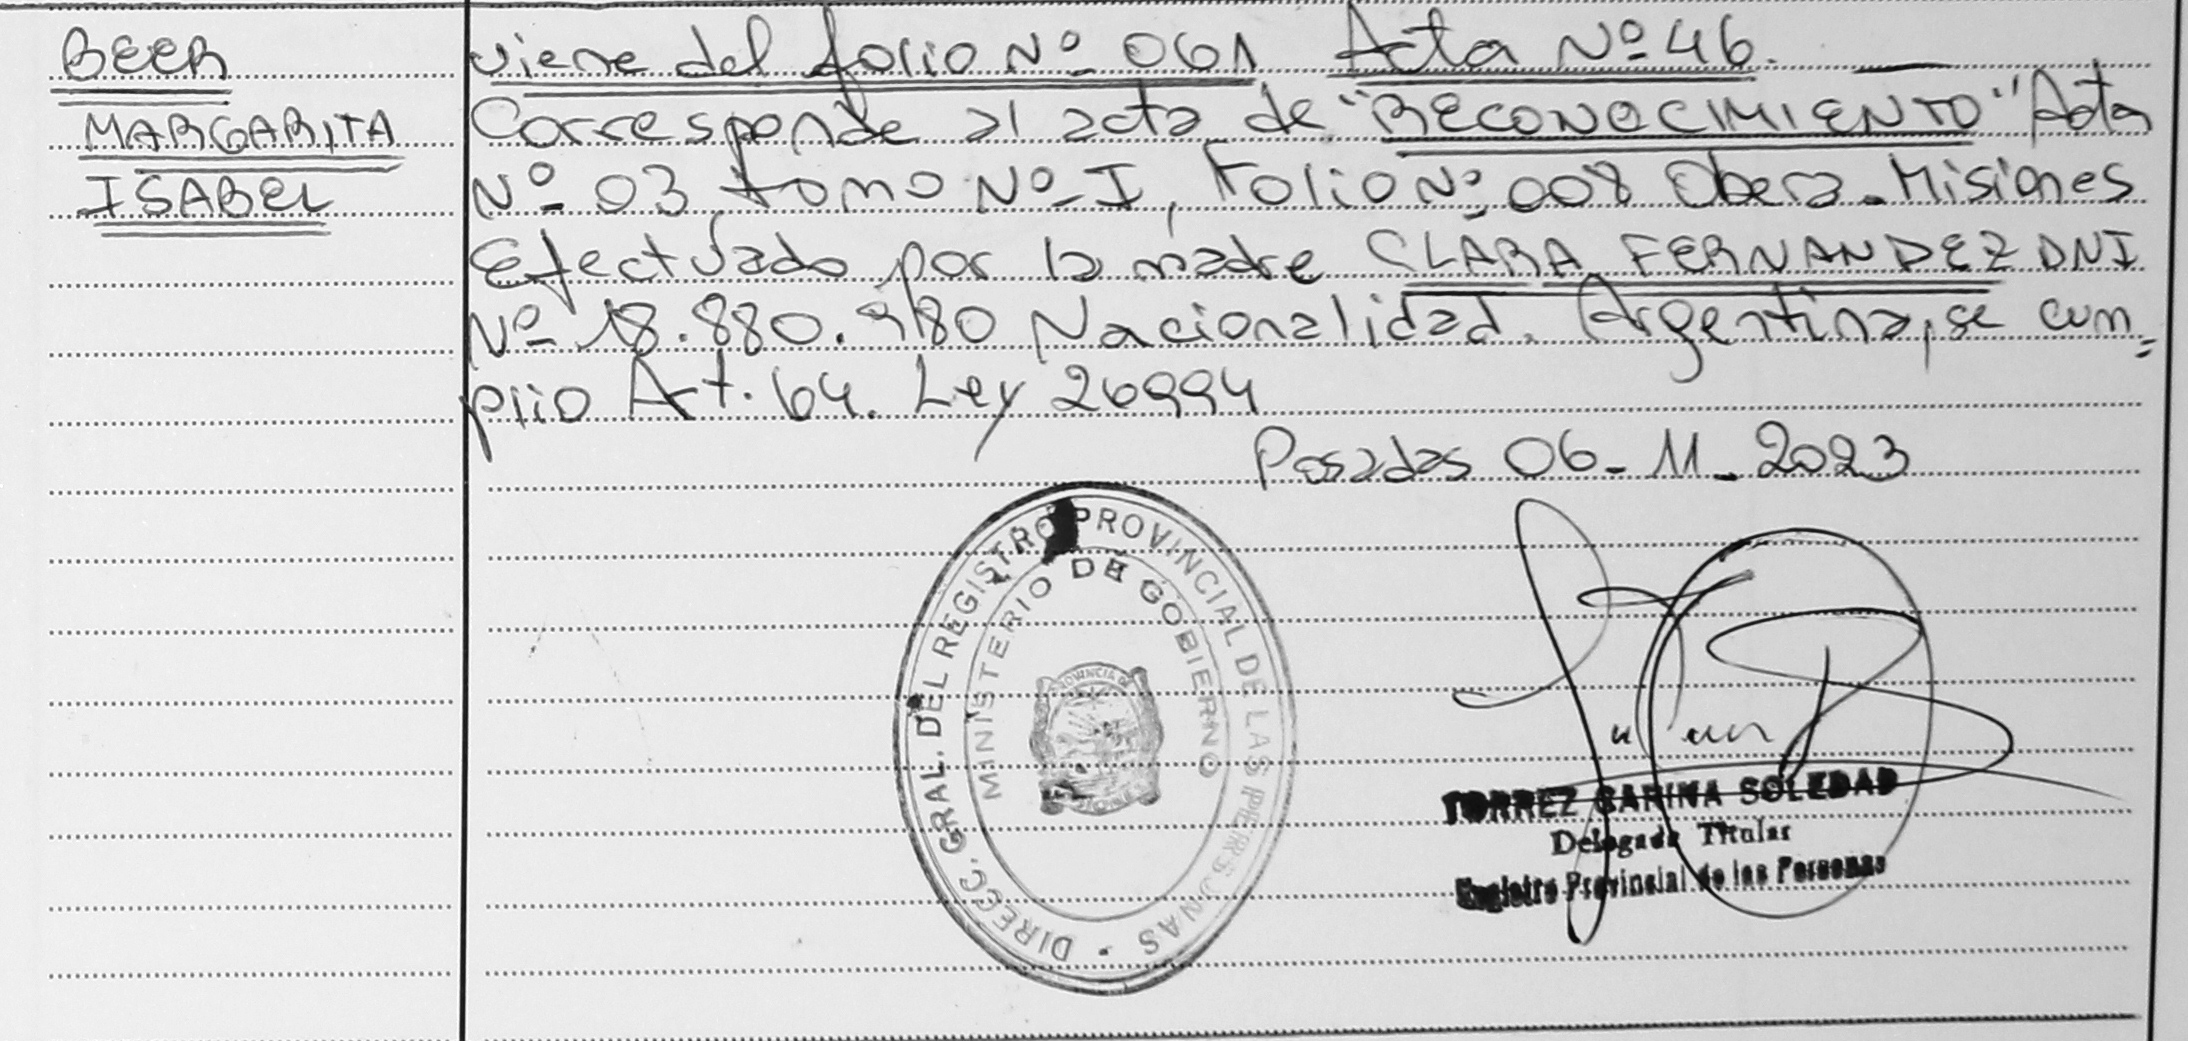 BEER
MARGARITA
ISABEL
viene del folio Nº 061 Acta Nº 46.
Corresponde al acta de "RECONOCIMIENTO" Acta
Nº 03, tomo Nº I, Folio Nº 008 Obera - Misiones
Efectuado por la madre CLARA FERNANDEZ DNI
Nº 18.880.980 Nacionalidad. Argentina, se cum=
plio Art. 64. Ley 26994
Posadas 06-11-2023
DIRECC. GRAL. DEL REGISTRO PROVINCIAL DE LAS PERSONAS
MINISTERIO DE GOBIERNO
PROVINCIA DE
MISIONES
TORREZ CARINA SOLEDAD
Delegada Titular
Registro Provincial de las Personas